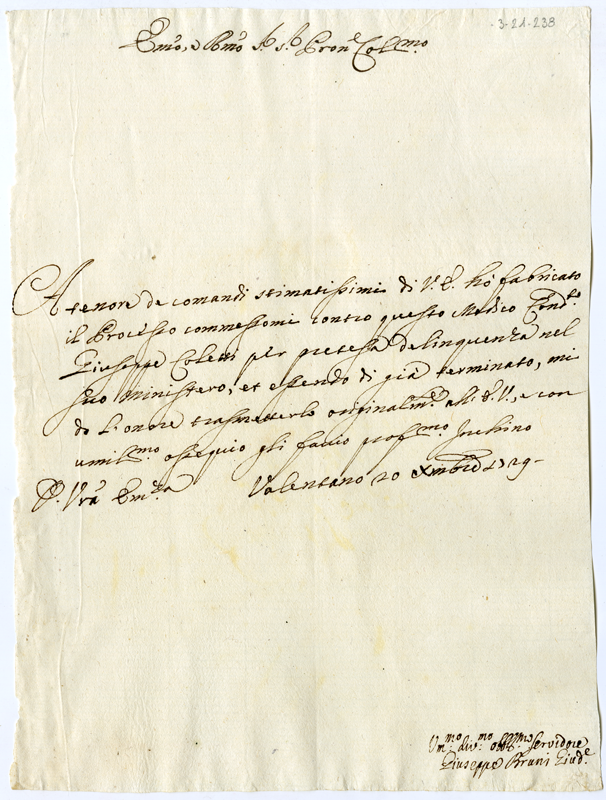 - 3-21-238
Emo, e Rmo Sr. Sr. Pron.e Col.mo
A tenore de comandi stimatissimi di V. E. hò fabricato
il Processo commessomi contro questo Medico Cond.to
Giuseppe Coletti per pretesa delinquenza nel
suo Ministero, et essendo di già terminato, mi
do l'onore trasmetterlo originalm.e all'E. V., e con
umil.mo ossequio gli faccio prof.mo Inchino
D. Vra Em.za Valentano 20 Xmbre 1729-
Um.mo div.mo obbl.mo Servidore
Giuseppe Bruni Giud.e